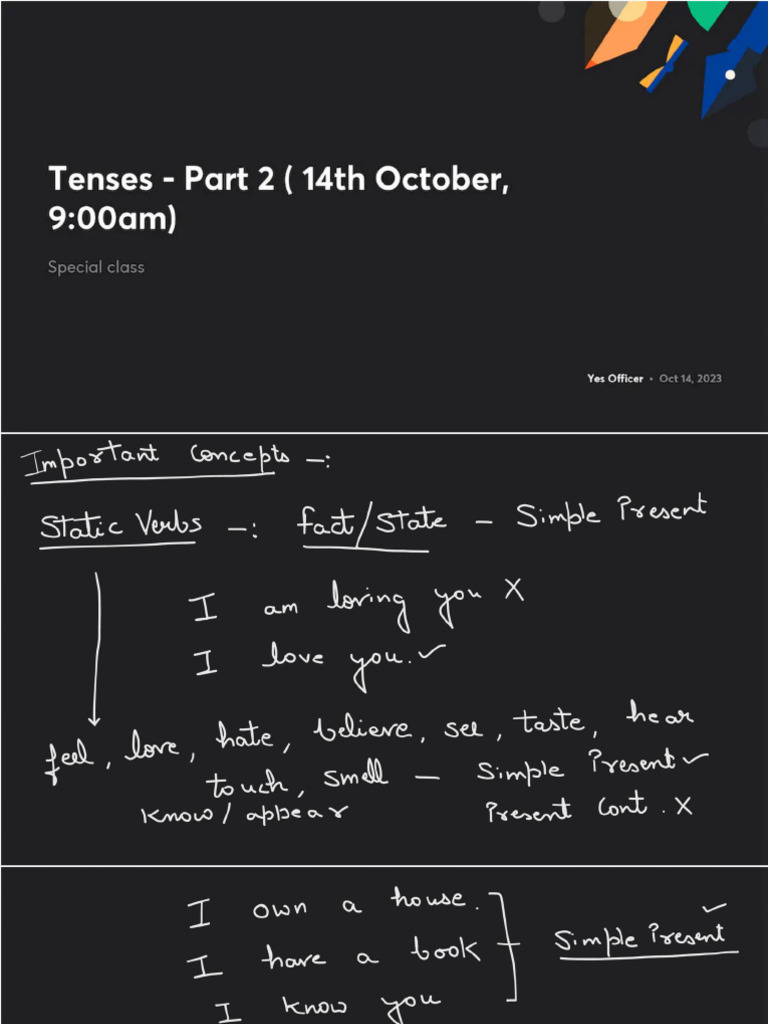 Tenses - Part 2 ( 14th October,
9:00am)
Special class
Yes Officer • Oct 14, 2023
Important Concepts -:
Static Verbs -: fact/State - Simple Present
I am loving you X
I love you. ✓
feel, love, hate, believe, see, taste, hear
touch, smell - Simple Present ✓
Know / appear Present Cont. X
I own a house.
I have a book
Simple Present ✓
I know you